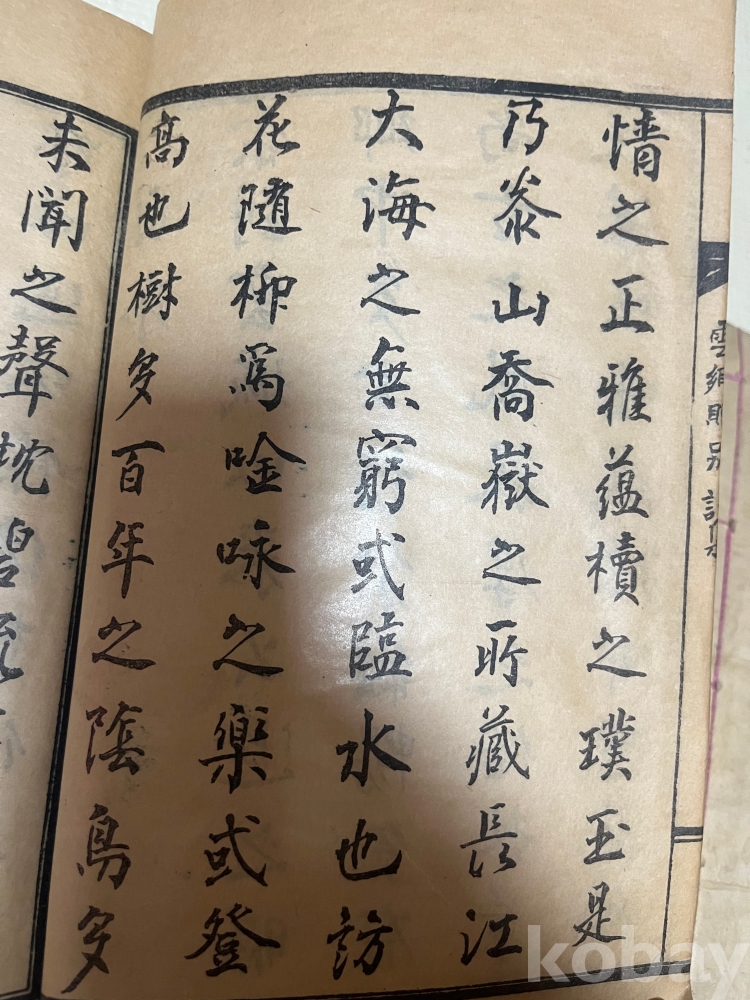 情之正雅蘊櫝之璞玉是
乃泰山喬嶽之所藏長江
大海之無窮或臨水也訪
花隨柳爲唫咏之樂或登
高也樹多百年之陰鳥多
未聞之聲枕碧流
kobay